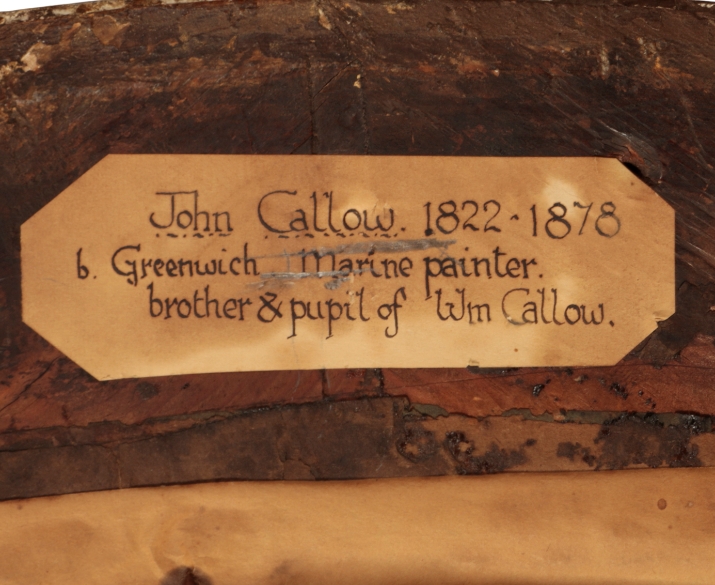 John Callow. 1822-1878
b. Greenwich Marine painter.
brother & pupil of Wm Callow.